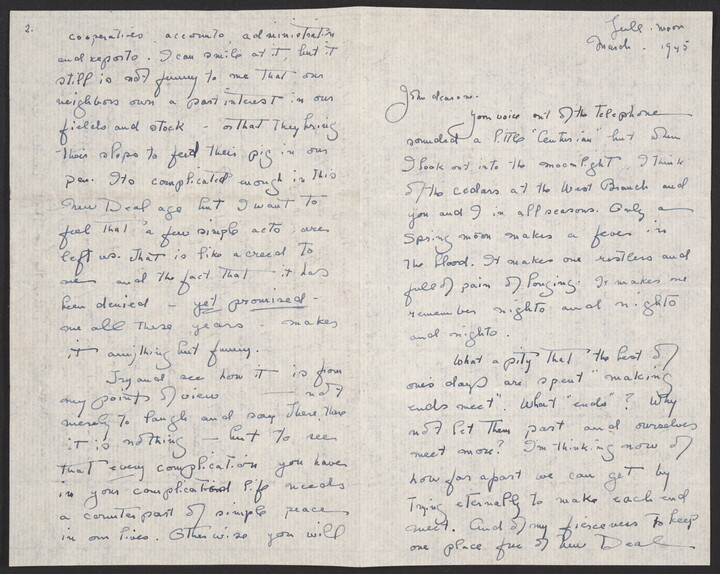 Full moon
March. 1945
John dearone.
Your voice out of the telephone
sounded a little "Centurian" but when
I look out into the moonlight I think
of the cedars at the West Branch and
you and I in all seasons. Only a
Spring moon makes a fever in
the blood. It makes one restless and
full of pain of longing. It makes me
remember nights and nights
and nights.
What a pity that the best of
one's days are spent "making
ends meet". What "ends"? Why
not let them part and ourselves
meet more? I'm thinking now of
how far apart we can get by
trying eternally to make each end
meet. And of my fierceness to keep
one place free of New Deal
2.
cooperatives, accounts, administration
and reports. I can smile at it, but it
still is not funny to me that our
neighbors own a part interest in our
fields and stock - or that they bring
their slops to feed their pig in our
pen. Its complicated enough in this
New Deal age but I want to
feel that a few simple acts are
left us. That is like a creed to
me and the fact that it has
been denied - yet promised -
me all these years - makes
it anything but funny.
Try and see how it is from
my points of view - not
merely to laugh and say There, there
it is nothing - but to see
that every complication you have
in your complicated life needs
a counterpart of simple peace
in our lives. Otherwise you will